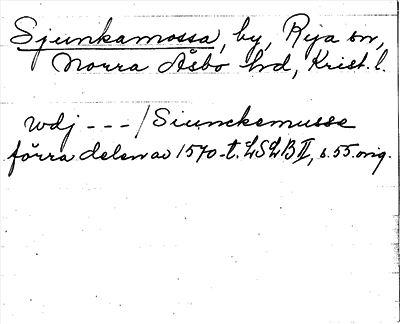 Sjunkamossa, by, Rya sn,
Norra Åsbo hd, Krist. l.
wdj - - - / Siunckemusse
förra delen av 1570-t. LSLB II, s. 55. orig.